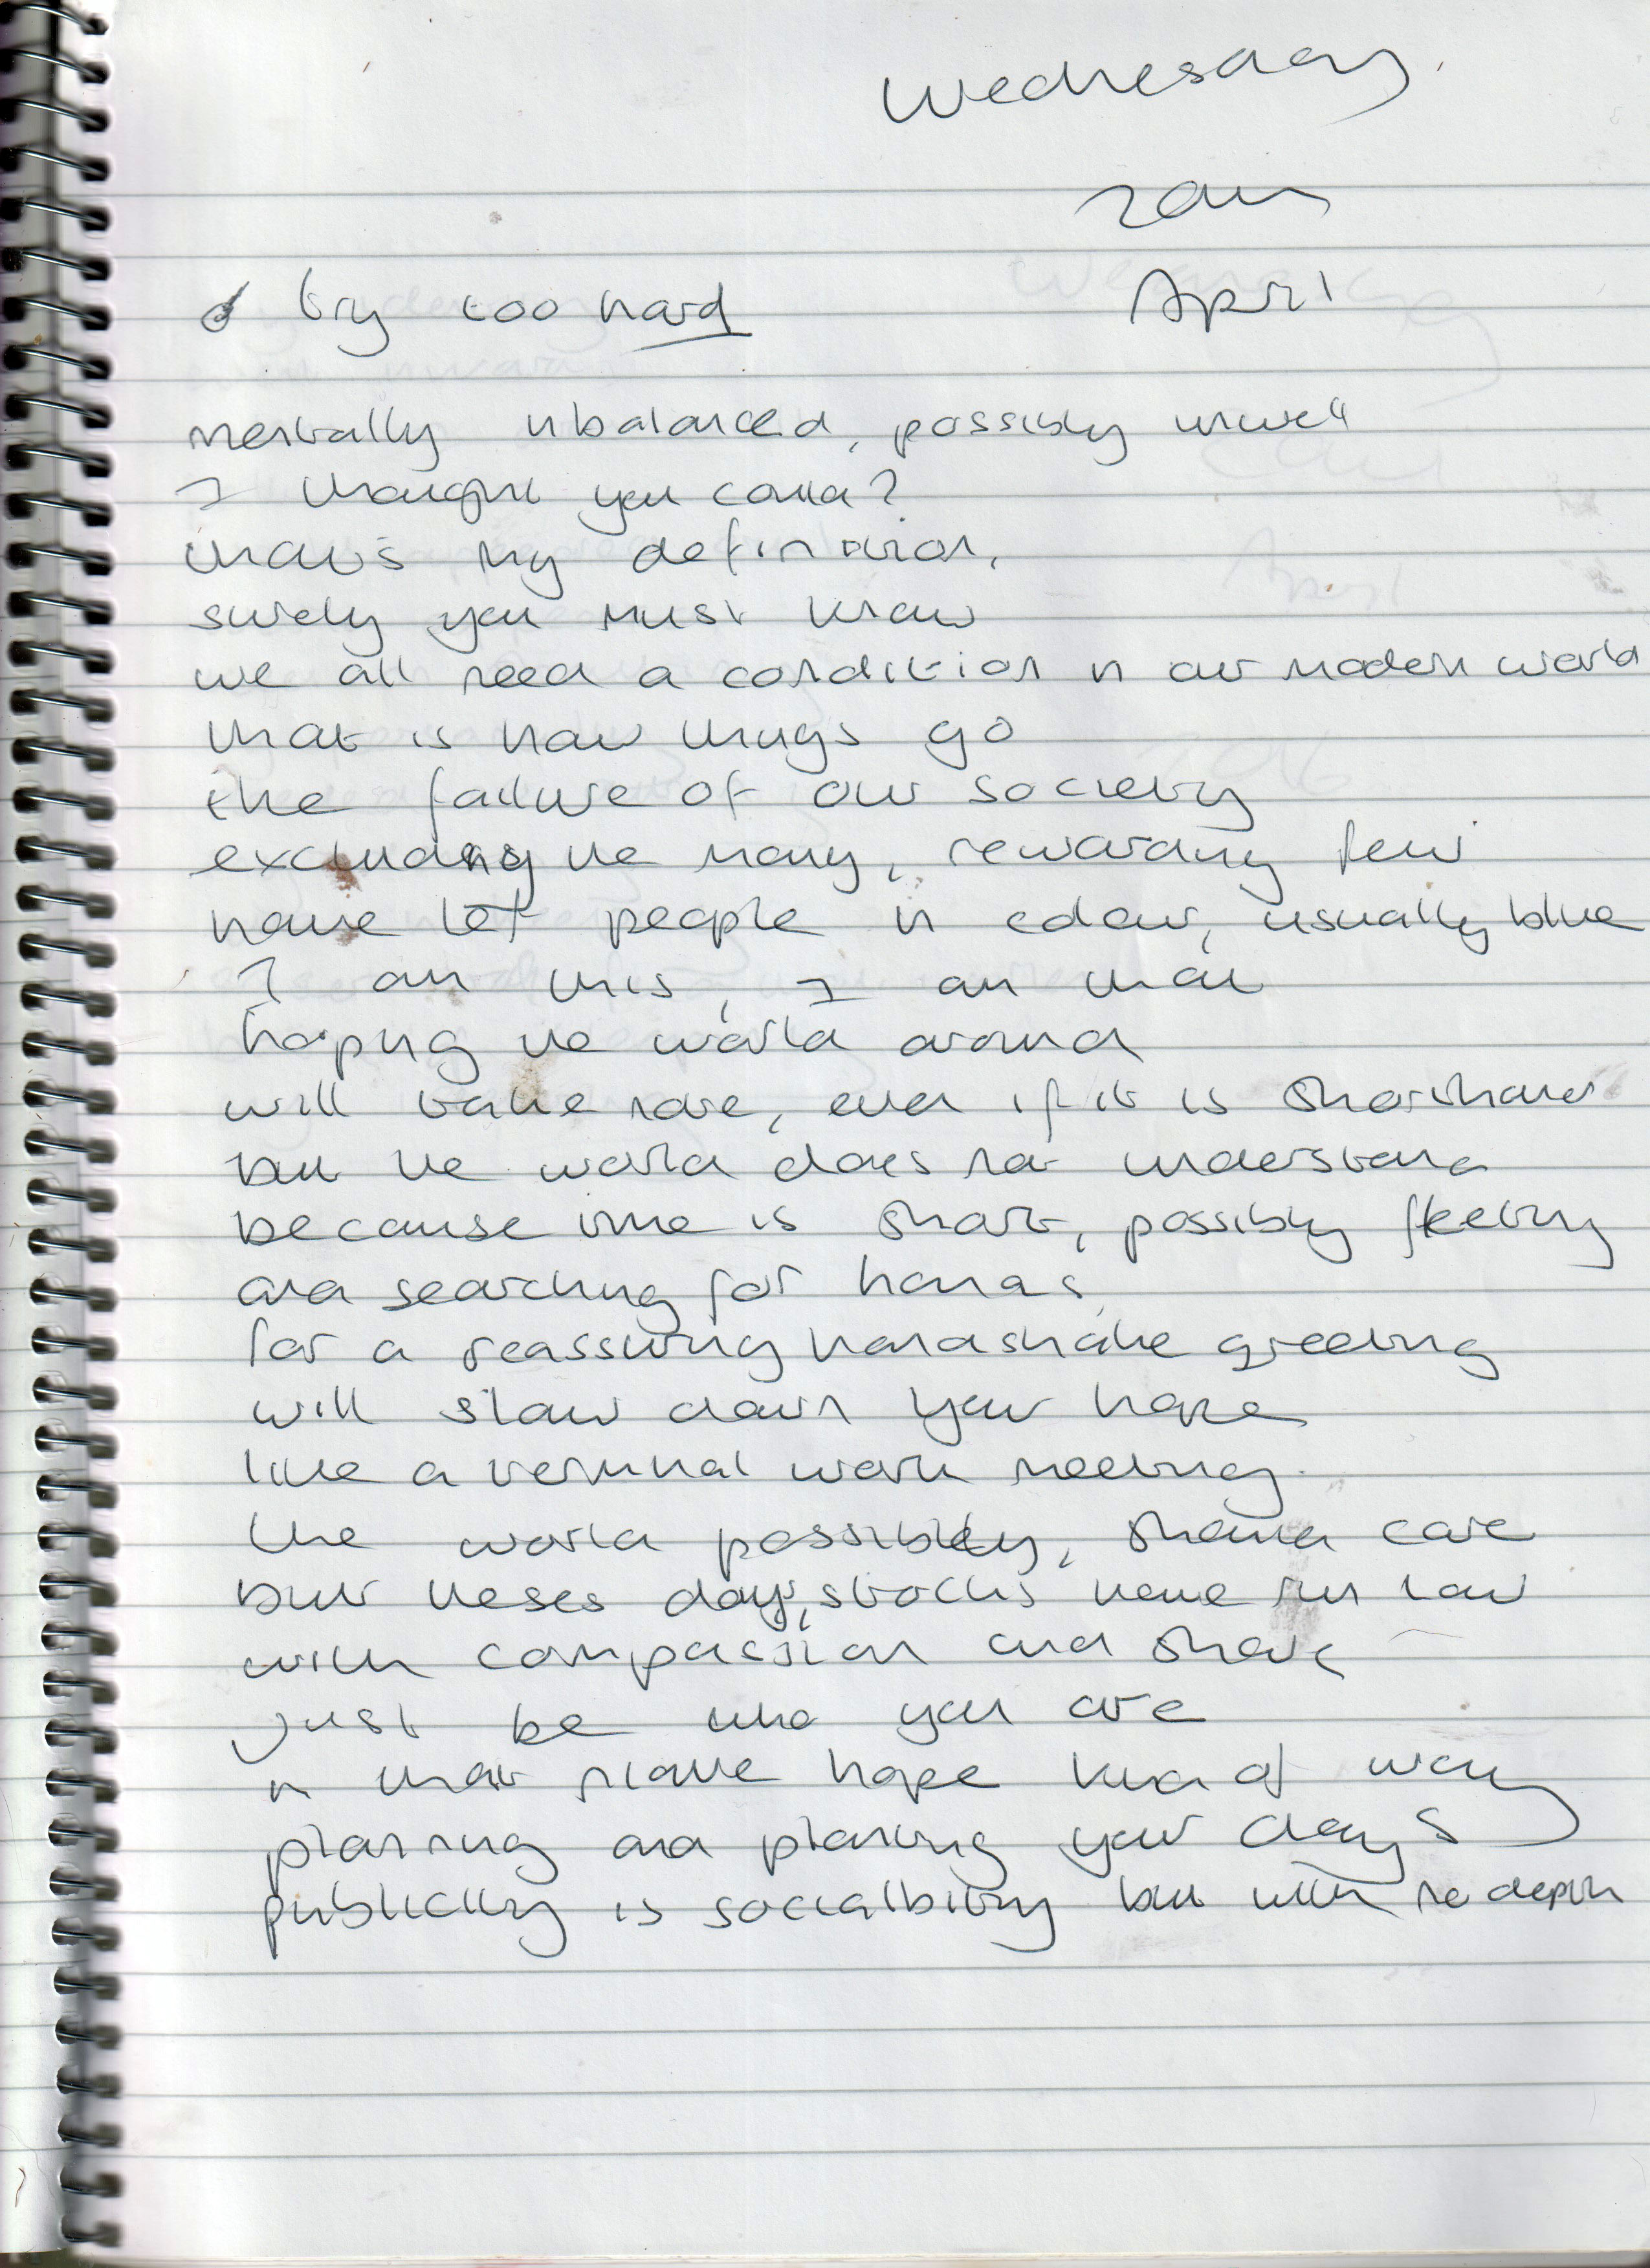 Wednesday
20th
April
try too hard
mentally inbalanced, possibly unwell
I thought you could?
that's my definition,
surely you must know
we all need a condition in our modern world
that is how things go
the failure of our society
excluding the many, rewarding few
have let people in colour, usually blue
I am this, I am that
hoping the world around
will take note, even if it is shorthand
but the world does not understand
because time is short, possibly fleeting
and searching for hands
for a reassuring handshake greeting
will slow down your hope
like a terminal work meeting.
the world possibley, should care
but theses days, stocks have run low
with compassion and share
just be who you are
in that hope kind of way
planning and planting your days
publicity is socialbility but with no depth